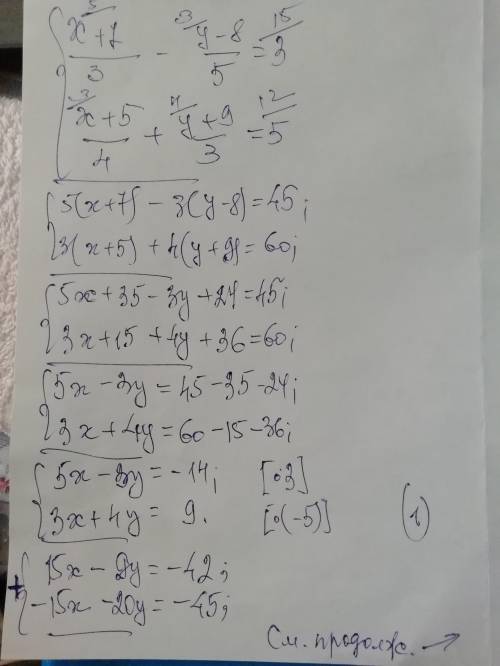 { x+7^{5/} / 3 - ^{3/}y-8 / 5 = 3^{15/}
{ ^{3/}x+5 / 4 + ^{4/}y+9 / 3 = 5^{12/}
{ 5(x+7) - 3(y-8) = 45;
{ 3(x+5) + 4(y+9) = 60;
{ 5x + 35 - 3y + 24 = 45;
{ 3x + 15 + 4y + 36 = 60;
{ 5x - 3y = 45 - 35 - 24;
{ 3x + 4y = 60 - 15 - 36;
{ 5x - 3y = -14; [∘3]
{ 3x + 4y = 9. [∘(-5)] (1)
+{ 15x - 9y = -42;
{ -15x - 20y = -45;
См. продолж. →